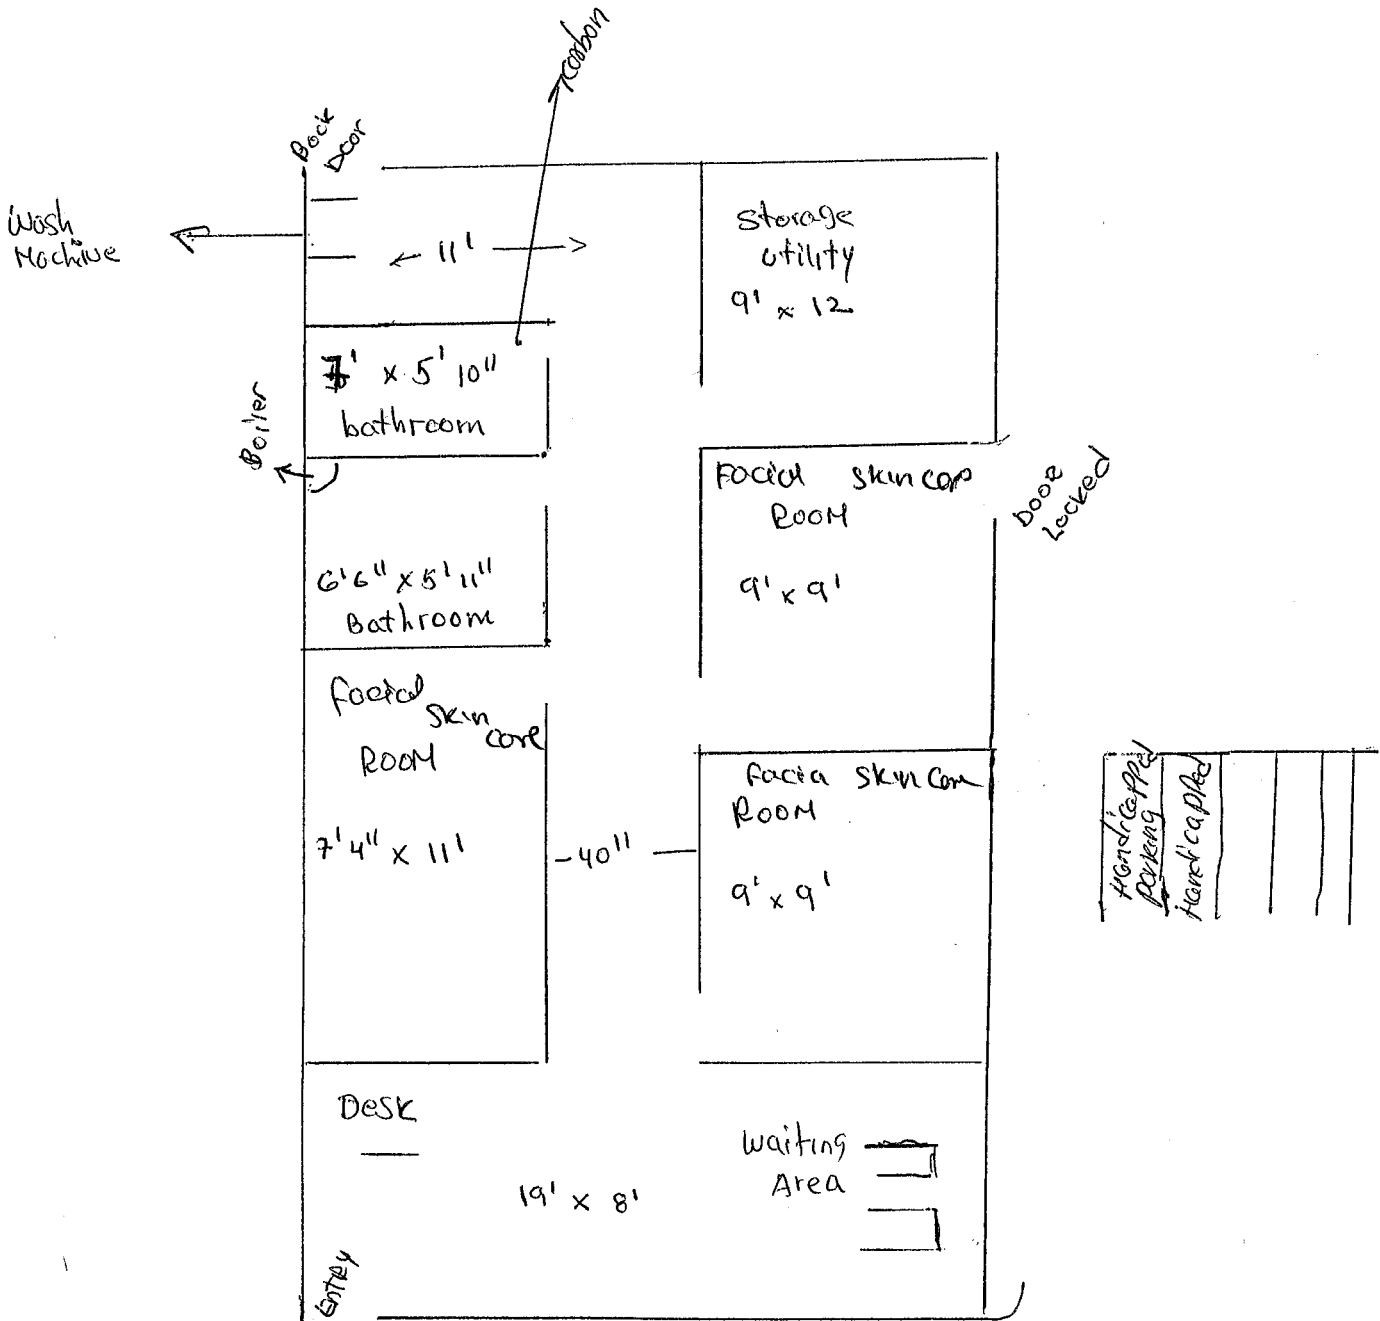 Carbon
Back
Door
Wash
Machine
11'
Storage
utility
9' x 12
7' x 5' 10"
bathroom
Boiler
Facial skin care
ROOM
9' x 9'
DOOR
Locked
6'6" x 5' 11"
Bathroom
facial
skin
care
ROOM
7' 4" x 11'
-40"
Facia skin care
ROOM
9' x 9'
Handicapped
parking
Handicapped
Desk
Waiting
Area
19' x 8'
Entry